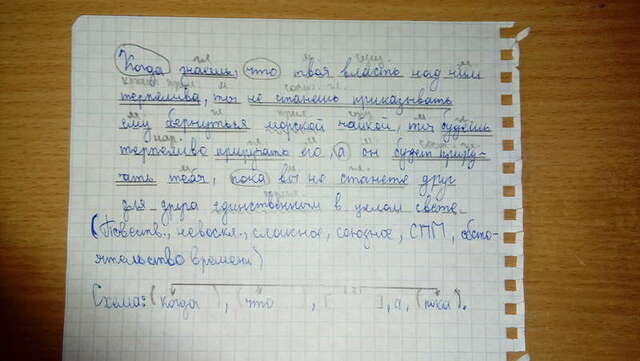 Когда знаешь, что твоя власть над ним
терпелива, ты не станешь приказывать
ему вернуться морской чайкой, ты будешь
терпеливо приручать его, а он будет приру-
чать тебя, пока вы не станете друг
для друга единственным в целом свете.
(Повеств., невоскл., сложное, союзное, СПП, обсто-
ятельство времени)
Схема: (когда ), (что ), [ ], а, (пока ).